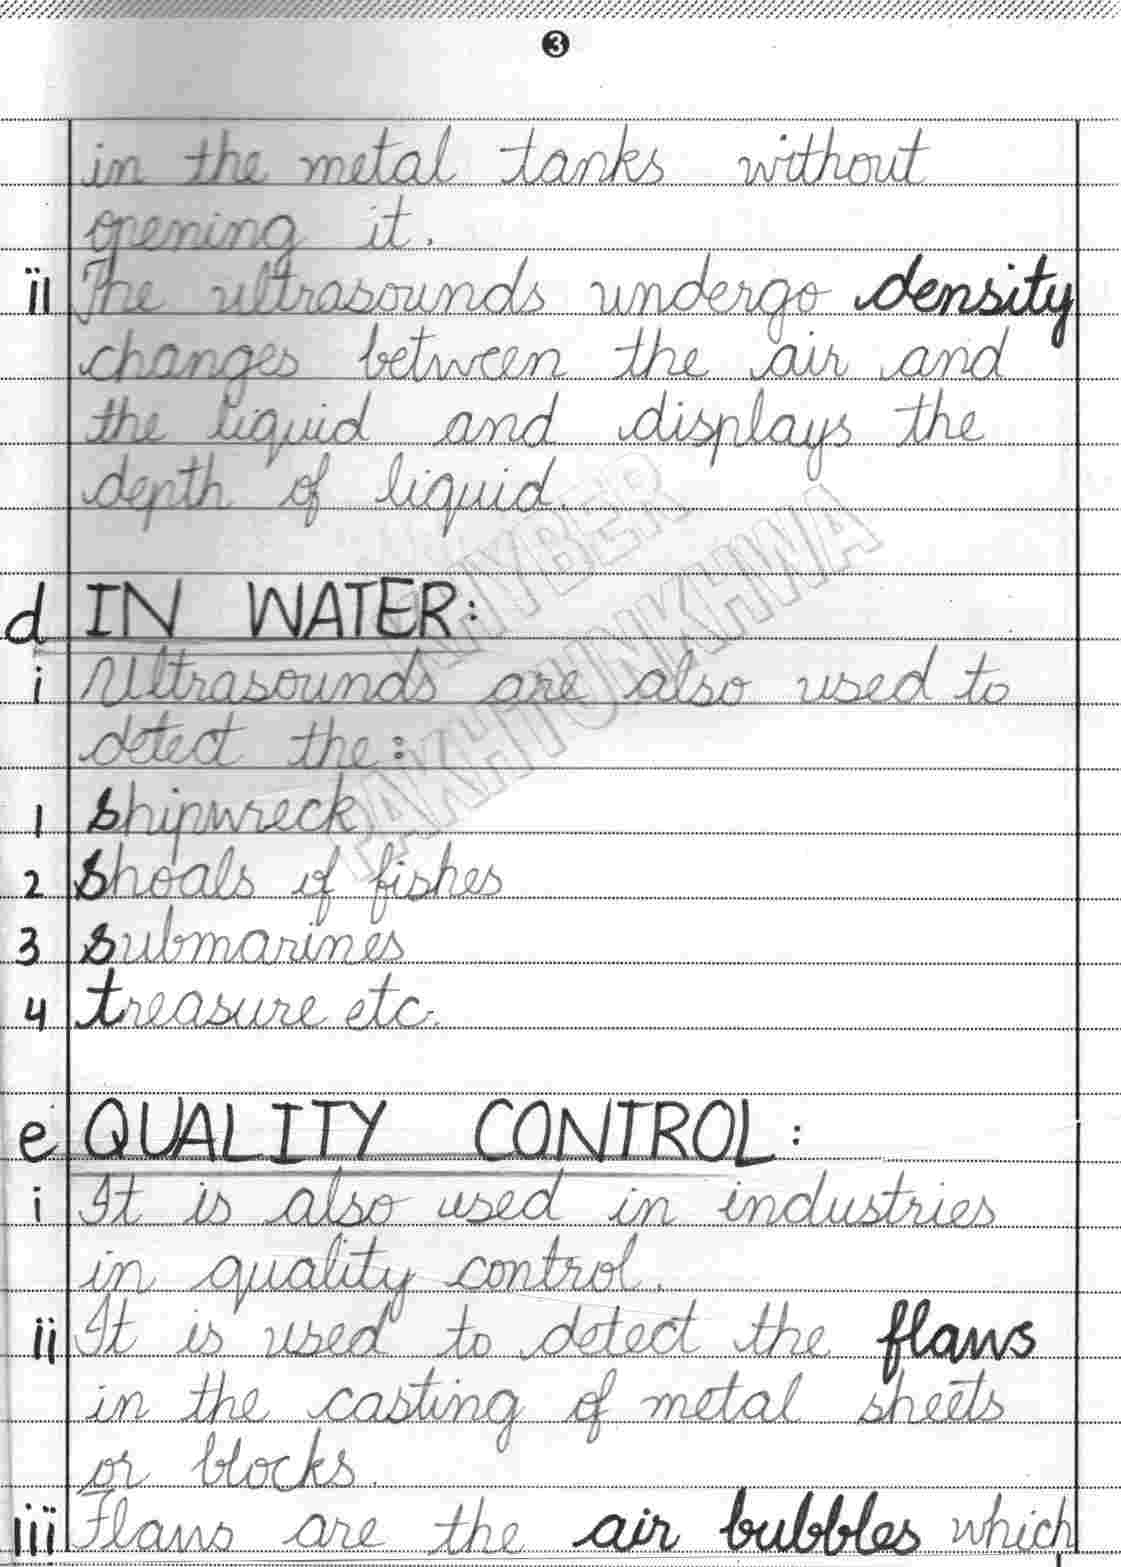 3
in the metal tanks without
opening it.
ii The ultrasounds undergo density
changes between the air and
the liquid and displays the
depth of liquid.
KHYBER
PAKHTUNKHWA
d IN WATER:
i Ultrasounds are also used to
detect the:
1 shipwreck
2 shoals of fishes
3 submarines
4 treasure etc.
e QUALITY CONTROL:
i It is also used in industries
in quality control.
ii It is used to detect the flaws
in the casting of metal sheets
or blocks.
iii Flaws are the air bubbles which